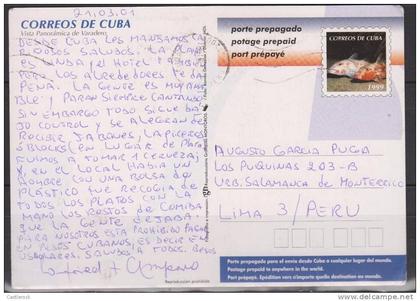 21,03.01
CORREOS DE CUBA
Vista Panorámica de Varadero.
DESDE CUBA LES MANDAMOS CARIÑOSOS SALUDOS.
ES LINDA y EL HOTEL TAMBIEN
PERO LOS ALREDEDORES TE DA
PENA. LA GENTE ES MUY AMABLE
y PARAN SIEMPRE CANTANDO
SIN EMBARGO TODO SIGUE BAJO
CONTROL y SE ALEGRAN DE
RECIBIR JABONES, LAPICEROS
BLOCKS (EN LUGAR DE
FUIMOS A TOMAR 1 CERVEZA)
y, EN EL LOCAL HABIA UN
HOMBRE CON UNA BOLSA DE
PLASTICO QUE RECOGIA DE
TODOS LOS PLATOS CON LA
MANO LOS RESTOS DE COMIDA
QUE LA GENTE DEJABA.
PARA NOSOTROS ESTA PROHIBIDO PAGAR
EN PESOS CUBANOS, ES DECIR EN
DOLARES. SALUDO A TODOS. BESOS
Reproducción prohibida
porte prepagado
potage prepaid
port prépayé
CORREOS DE CUBA
1999
AUGUSTO GARCIA PUGA
LOS PUQUINAS 203-B
URB. SALAMANCA DE MONTERRICO
LIMA 3/PERU
Porte prepagado para el envío desde Cuba a cualquier lugar del mundo.
Postage prepaid to anywhere in the world.
Port prépayé pour l'expédition vers n'importe quelle destination au monde.